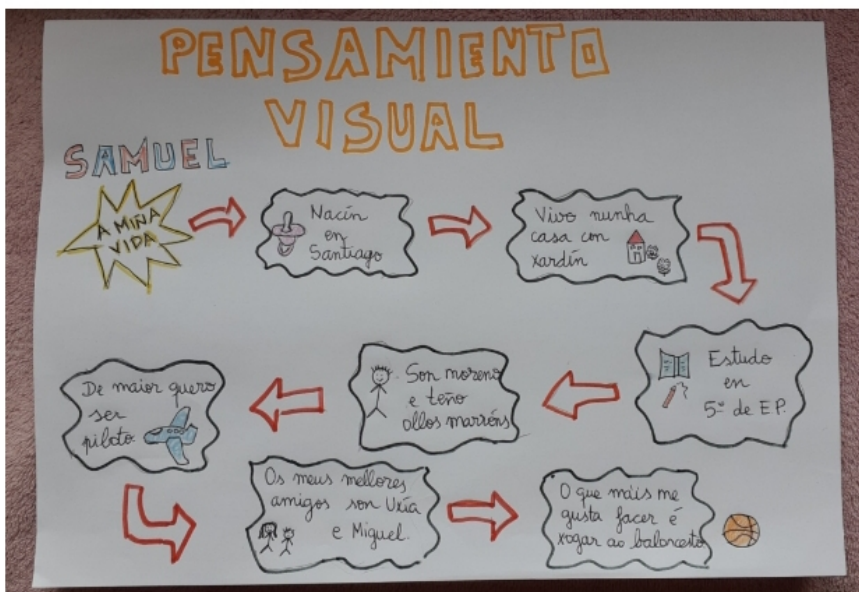 PENSAMIENTO
VISUAL
SAMUEL
A MIÑA
VIDA
Nacín
en
Santiago
Vivo nunha
casa con
xardín
Estudo
en
5º de E.P.
Son moreno
e teño
ollos marróns
De maior quero
ser
piloto.
Os meus mellores
amigos son Uxía
e Miguel.
O que máis me
gusta facer é
xogar ao baloncesto